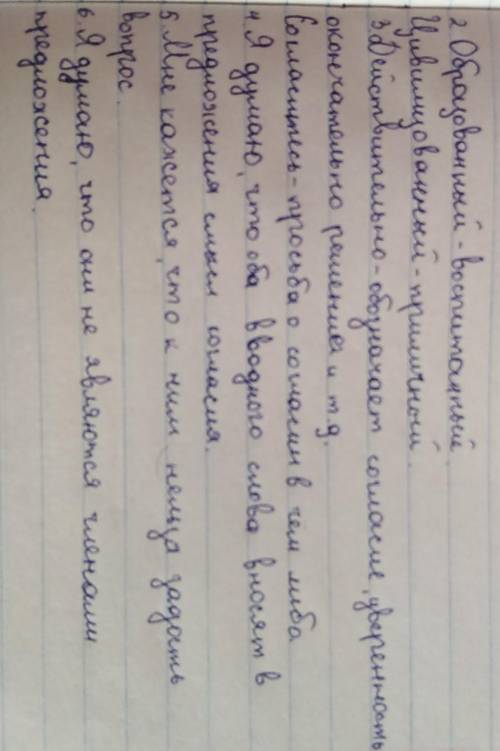 2 Образованный - воспитанный.
Цивилизованный - приличный.
3 Действительно - обозначает согласие, уверенность
окончательно решения и т д.
Согласитесь - просьба о согласии в чем либа
4 Я думаю, что оба вводного слова вносят в
предложения смысл согласия.
5. Мне кажется, что к ним нельзя задать
вопрос.
6 Я думаю, что они не являются членами
предложения.